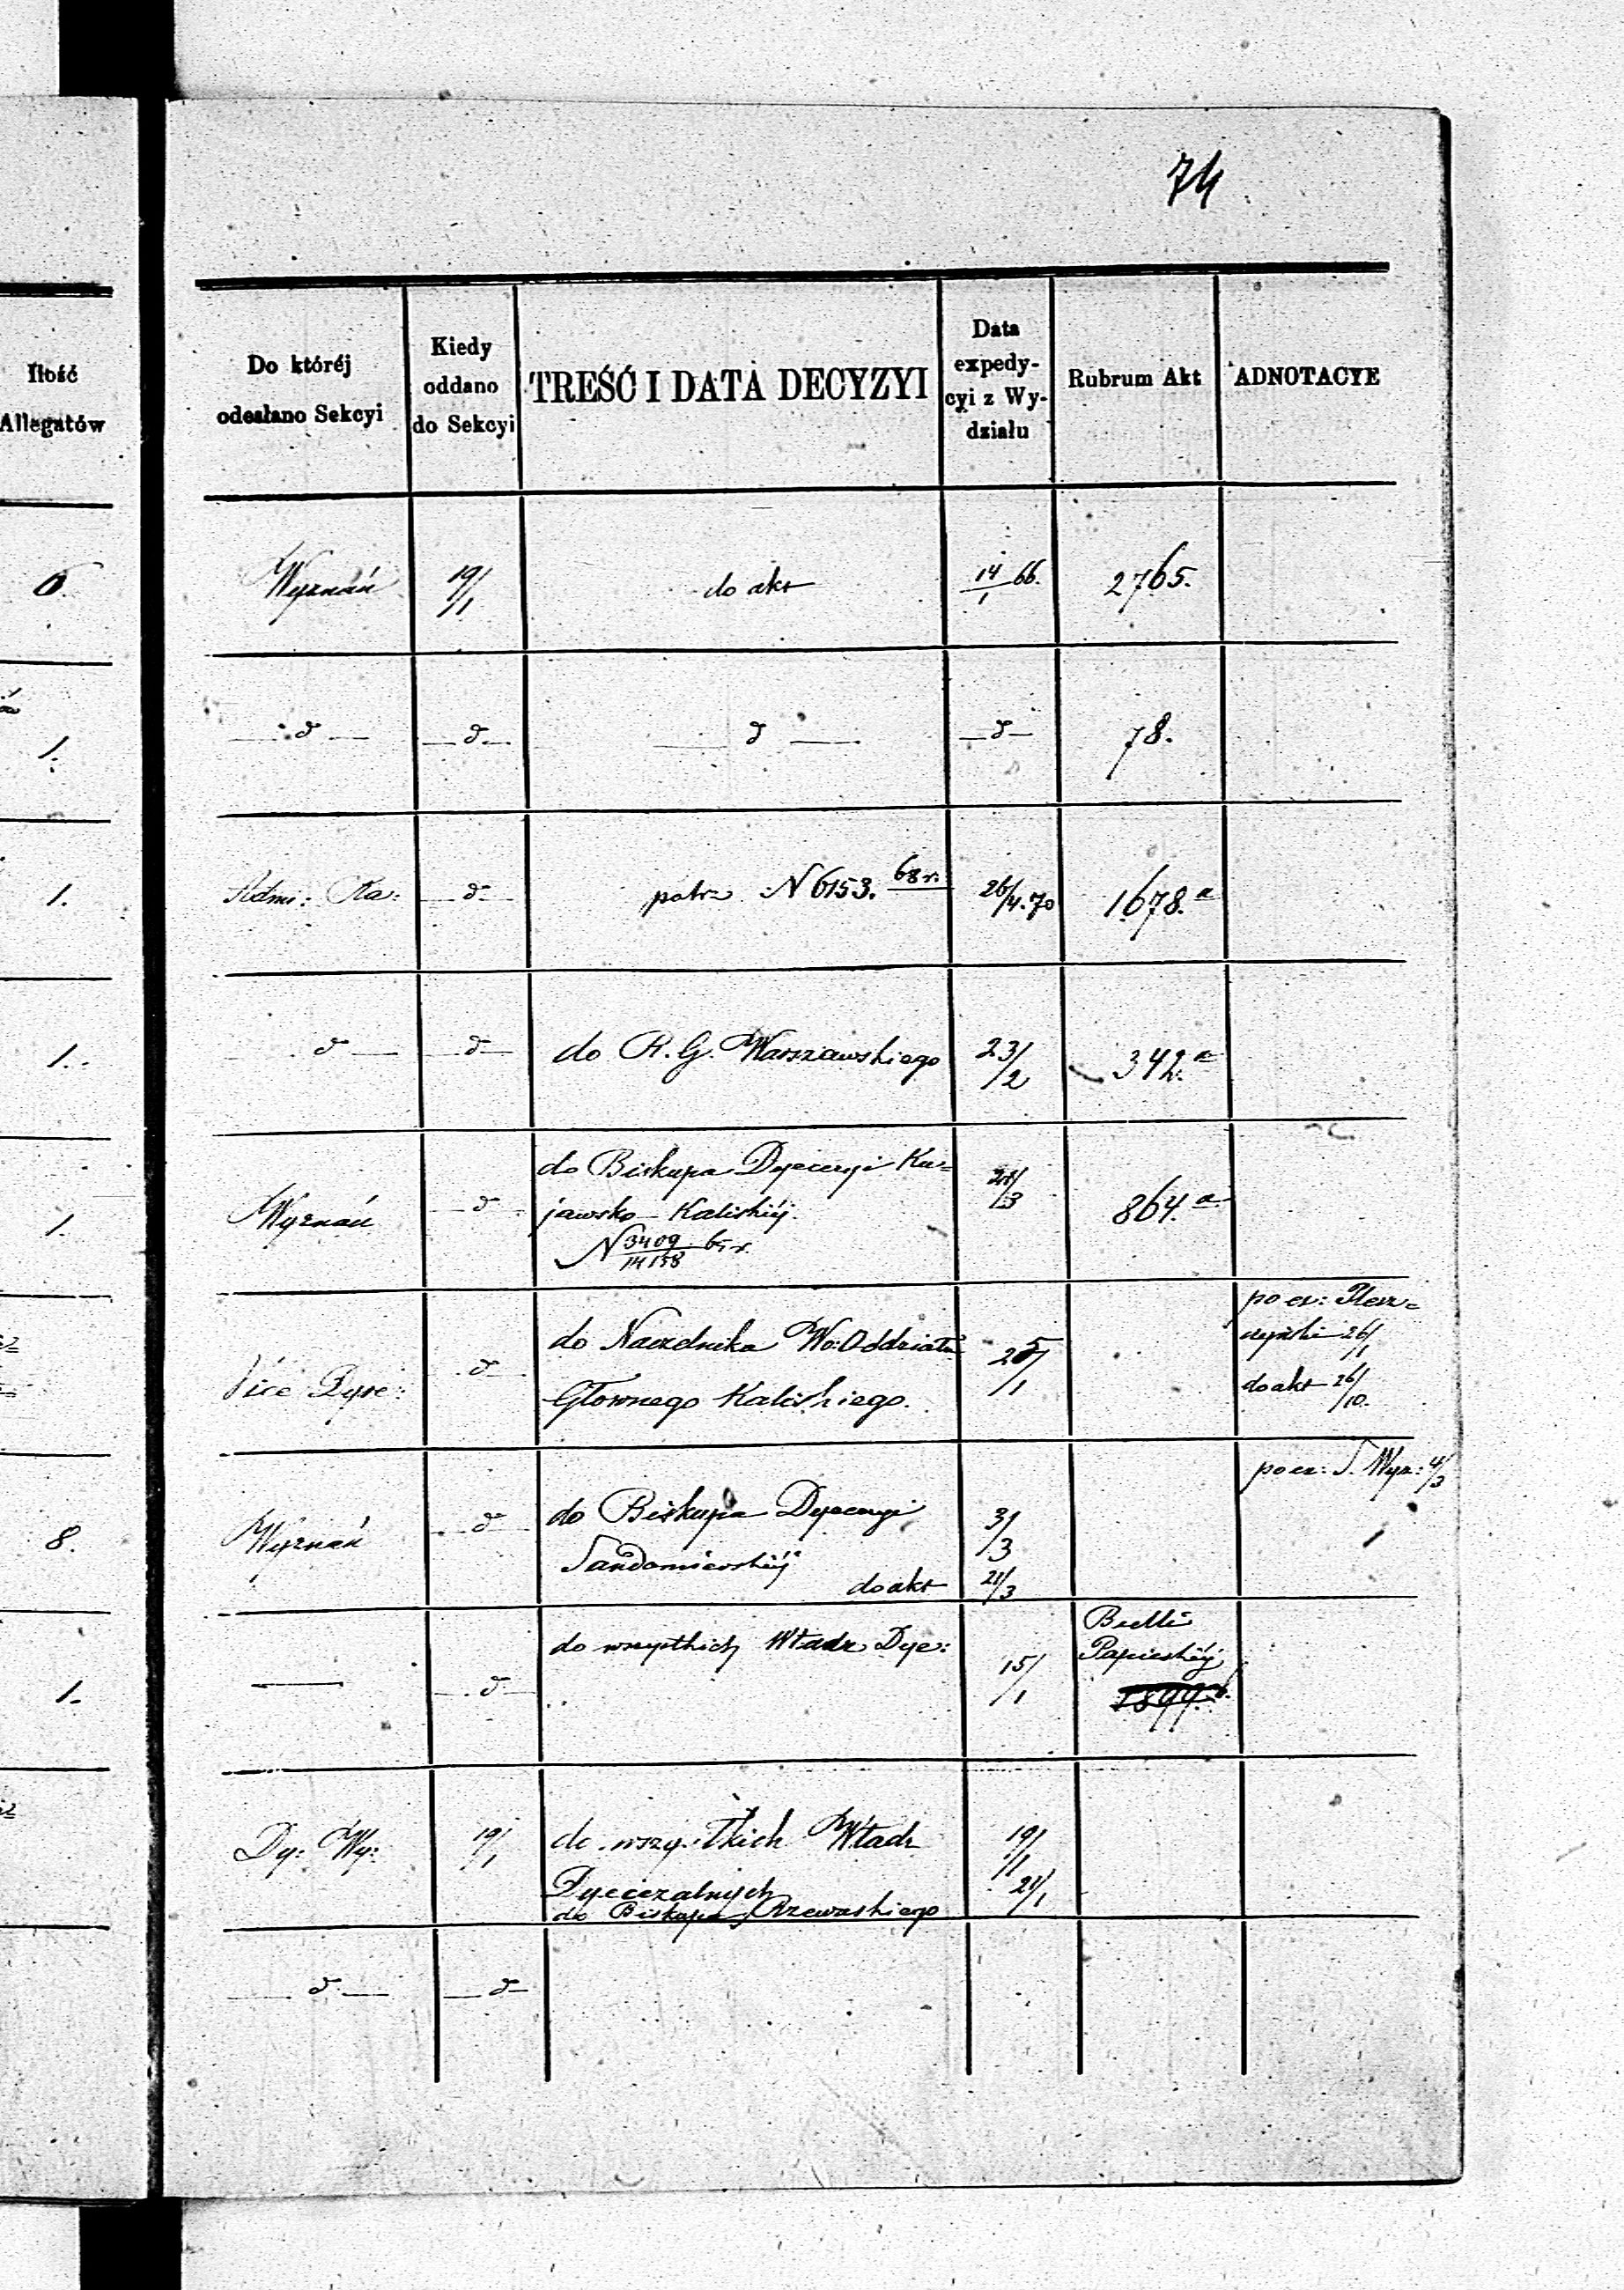 74
Ilość
Allegatów
Do któréj
odesłano Sekcyi
Kiedy
oddano
do Sekcyi
TREŚĆ I DATA DECYZYI
Data
expedy-
cyi z Wy-
działu
Rubrum Akt
ADNOTACYE
6.
Wyznań
19/1
do akt
14/1 66.
2765.
1.
d
d
d
d
78.
1.
Admi: Ka:
d
patrz N 6153. 68 r.
26/4.70
1678.a
1.
d
d
do R. G. Warszawskiego
23/2
342.a
1.
Wyznań
d
do Biskupa Dyecezyi Ku=
jawsko-Kaliskiéj.
N 3409/14158 65 r.
21/3
864.a
Vice Dyre:
d
do Naczelnika Wo: Oddziału
Głownego Kaliskiego.
25/1
po ex:
26/1
do akt 26/10.
8.
Wyznań
d
do Biskupa Dyecezyi
Sandomierskiéj
do akt
3/3
21/3
po ex: S. Wyz: 4/3
1.
d
do wszystkich Władz Dye:
15/1
Bulli
Papieskiéj
1899.b.
Dy: Wy:
19/1
do wszystkich Władz
Dyecezalnych
do Biskupa Rzewuskiego
19/1
21/1
d
d